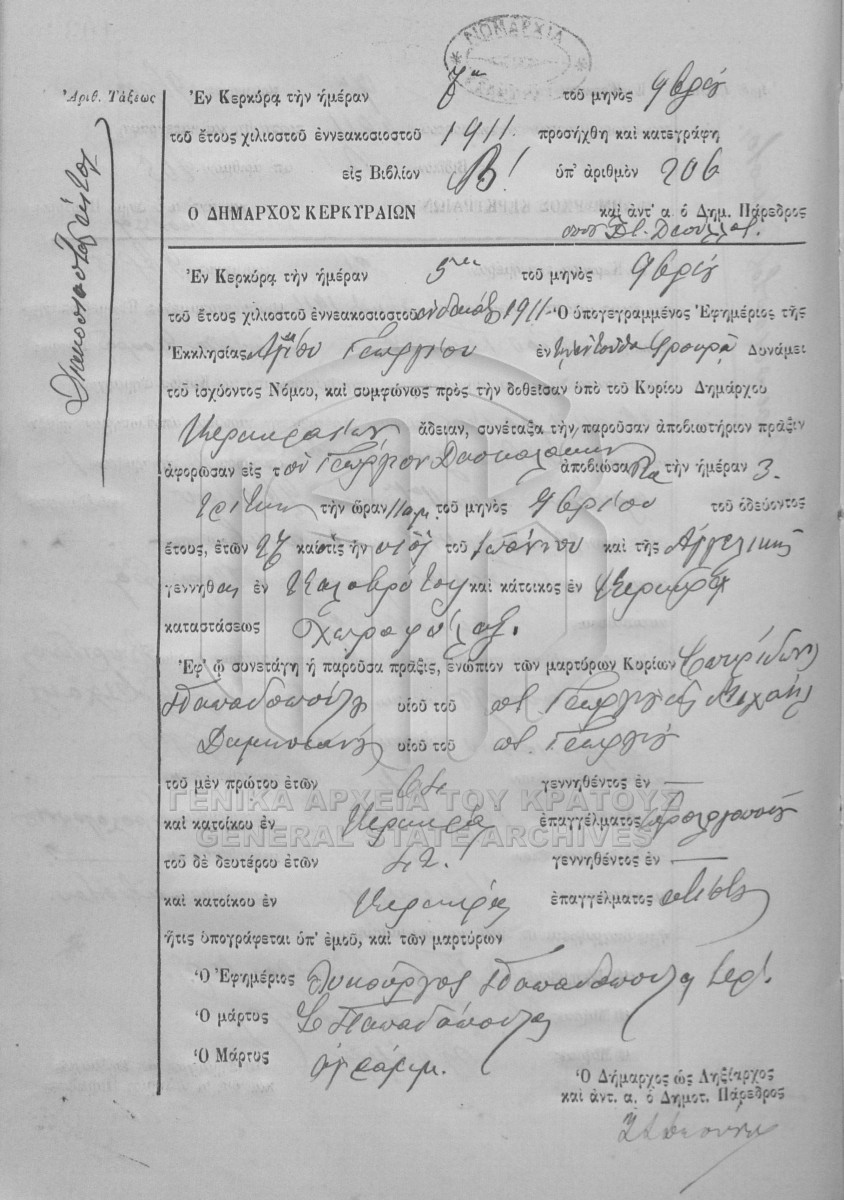 ΝΟΜΑΡΧΙΑ
Ἀριθ. Τάξεως
Διακοσιοστὸν ἕκτον
Ἐν Κερκύρᾳ τὴν ἡμέραν 7ην τοῦ μηνὸς 9βρίου
τοῦ ἔτους χιλιοστοῦ ἐννεακοσιοστοῦ 1911 προσήχθη καὶ κατεγράφη
εἰς Βιβλίον Β! ὑπ' ἀριθμὸν 206
Ὁ ΔΗΜΑΡΧΟΣ ΚΕΡΚΥΡΑΙΩΝ καὶ ἀντ' α. ὁ Δημ. Πάρεδρος
Ἐν Κερκύρᾳ τὴν ἡμέραν 5ην τοῦ μηνὸς 9βρίου
τοῦ ἔτους χιλιοστοῦ ἐννεακοσιοστοῦ ἑνδεκάτου 1911 Ὁ ὑπογεγραμμένος Ἐφημέριος τῆς
Ἐκκλησίας Ἁγίου Γεωργίου ἐν Φρουρᾷ Δυνάμει
τοῦ ἰσχύοντος Νόμου, καὶ συμφώνως πρὸς τὴν δοθεῖσαν ὑπὸ τοῦ Κυρίου Δημάρχου
Κερκυραίων ἄδειαν, συνέταξα τὴν παροῦσαν ἀποβιωτήριον πρᾶξιν
ἀφορῶσαν εἰς τὸν Γεώργιον Δασκαλάκην ἀποβιώσαντα τὴν ἡμέραν 3.
τρίτην τὴν ὥραν 11 π.μ. τοῦ μηνὸς 9βρίου τοῦ ὁδεύοντος
ἔτους, ἐτῶν 27 καὶ ὅστις ἦν υἱὸς τοῦ Ἰωάννου καὶ τῆς Ἀγγελικῆς
γεννηθεὶς ἐν Καλαβρύτοις καὶ κάτοικος ἐν Κερκύρᾳ
καταστάσεως Χωροφύλαξ.
Ἐφ' ᾧ συνετάγη ἡ παροῦσα πρᾶξις, ἐνώπιον τῶν μαρτύρων Κυρίων Σπυρίδωνος
Παπαδοπούλου υἱοῦ τοῦ ποτ. Γεωργίου καὶ Μιχαὴλ
Δαμασκηνοῦ υἱοῦ τοῦ ποτ. Γεωργίου
τοῦ μὲν πρώτου ἐτῶν 64 γεννηθέντος ἐν —
καὶ κατοίκου ἐν Κερκύρᾳ ἐπαγγέλματος
τοῦ δὲ δευτέρου ἐτῶν 42. γεννηθέντος ἐν —
καὶ κατοίκου ἐν Κερκύρᾳ ἐπαγγέλματος κτίστου
ἥτις ὑπογράφεται ὑπ' ἐμοῦ, καὶ τῶν μαρτύρων
Ὁ Ἐφημέριος Λυκοῦργος Παπαδόπουλος ἱερ.
Ὁ μάρτυς Σ Παπαδόπουλος
Ὁ Μάρτυς ἀγράμμ.
Ὁ Δήμαρχος ὡς Ληξίαρχος
καὶ ἀντ. α. ὁ Δημοτ. Πάρεδρος
ΓΕΝΙΚΑ ΑΡΧΕΙΑ ΤΟΥ ΚΡΑΤΟΥΣ
GENERAL STATE ARCHIVES